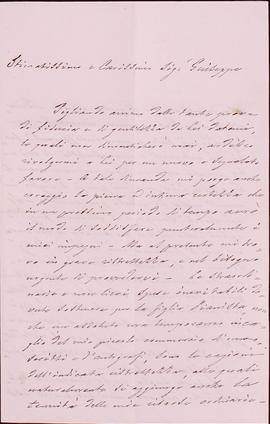 Stimatissimo e Carissimo Sigr Giuseppe
Pigliando animo dalle tante prove
di fiducia e di gentilezza da Lei datemi,
le quali non dimenticherò mai, ardisco
rivolgermi a Lei per un nuovo e segnalato
favore. A tale dimanda mi porge anche
coraggio la piena ed intima certezza che
in un prossimo periodo di tempo avrò
il modo di soddisfare puntualmente i
miei impegni. Ma al presente mi tro-
vo in grave ristrettezza, e nel bisogno
urgente di provvedervi. Le straordi-
narie e non lievi spese inevitabili do-
vute sostenere per la figlia
che un allocato ma temporaneo inca-
glio del mio piccolo commercio di mano-
scritti e d'autografi, sono la cagione
dell'indicata ristrettezza, alle quali
naturalmente si aggiunge anche la
tenuità delle mie entrate ordinarie